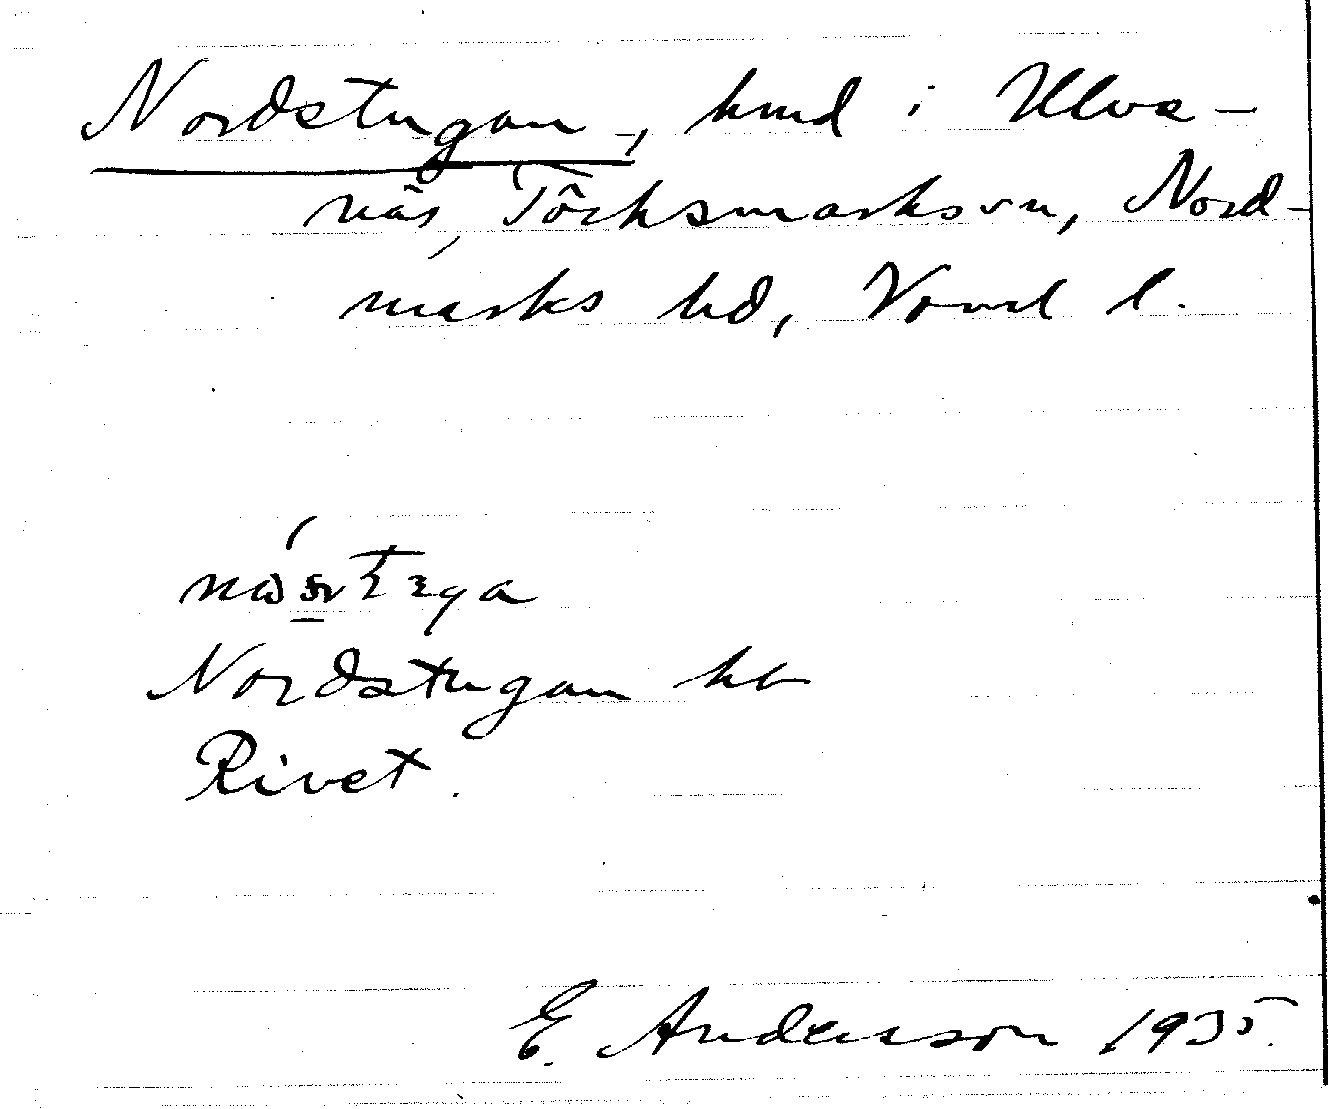 Nordstugan, hmd i Ulvs-
näs, Töcksmarks sn, Nord-
marks hd, Värml l.
Nordstugan hb
Rivet.
E. Anderson 1935.